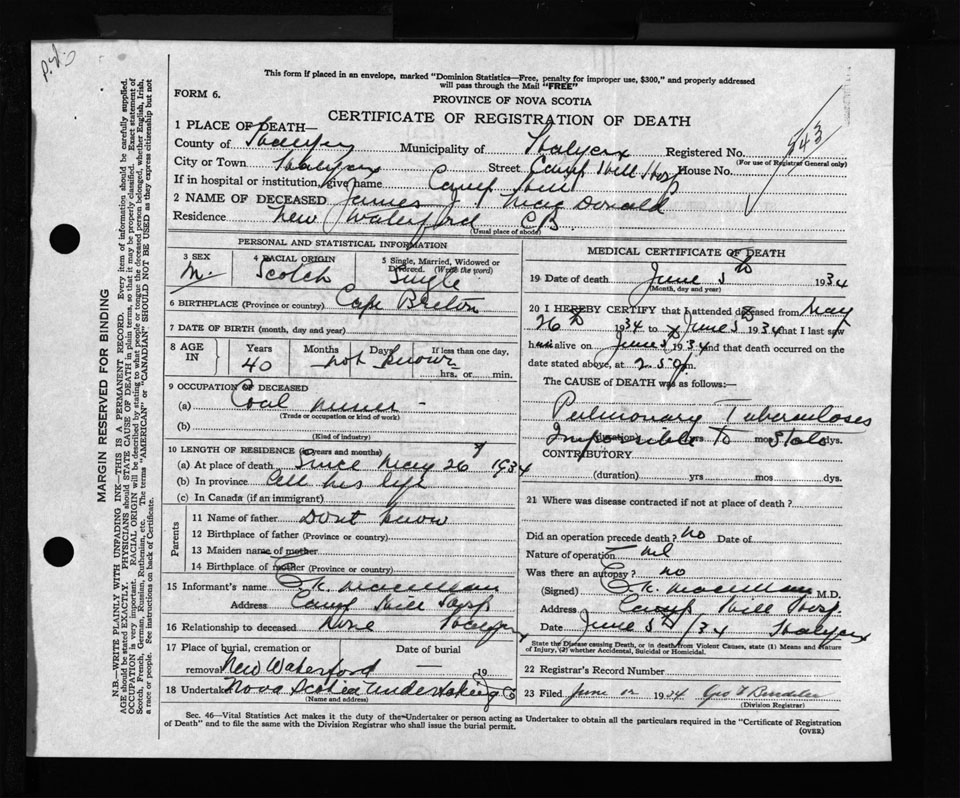 This form if placed in an envelope, marked "Dominion Statistics—Free, penalty for improper use, $300," and properly addressed
will pass through the Mail "FREE"
FORM 6.
PROVINCE OF NOVA SCOTIA
CERTIFICATE OF REGISTRATION OF DEATH
543
1 PLACE OF DEATH—
County of Halifax Municipality of Halifax Registered No.
(For use of Registrar General only)
City or Town Halifax Street Camp Hill Hosp House No.
If in hospital or institution, give name Camp Hill
2 NAME OF DECEASED James J MacDonald
Residence New Waterford C B
(Usual place of abode)
PERSONAL AND STATISTICAL INFORMATION
3 SEX M.
4 RACIAL ORIGIN Scotch
5 Single, Married, Widowed or Divorced. (Write the word) Single
6 BIRTHPLACE (Province or country) Cape Breton
7 DATE OF BIRTH (month, day and year)
8 AGE IN Years 40 Months Days not known If less than one day, hrs. or min.
9 OCCUPATION OF DECEASED
(a) Coal miner -
(Trade or occupation or kind of work)
(b)
(Kind of industry)
10 LENGTH OF RESIDENCE (in years and months)
(a) At place of death Since May 26 1934
(b) In province All his life
(c) In Canada (if an immigrant)
Parents
11 Name of father Dont know
12 Birthplace of father (Province or country)
13 Maiden name of mother
14 Birthplace of mother (Province or country)
15 Informant's name
Address Camp Hill Hosp
16 Relationship to deceased None Halifax
17 Place of burial, cremation or Date of burial
removal New Waterford – 19
18 Undertaker Nova Scotia Undertaking Co
(Name and address)
MEDICAL CERTIFICATE OF DEATH
19 Date of death June 5th 1934
(Month, day and year)
20 I HEREBY CERTIFY that I attended deceased from May
26th 1934 to June 5 1934 that I last saw
him alive on June 5 1934 and that death occurred on the
date stated above, at 2.50 m.
The CAUSE OF DEATH was as follows:—
Pulmonary Tuberculoses
Impossible To State
(duration) yrs mos dys.
CONTRIBUTORY
(duration) yrs mos dys.
21 Where was disease contracted if not at place of death?
Did an operation precede death? no Date of
Nature of operation nil
Was there an autopsy? no
(Signed) M.D.
Address Camp Hill Hosp.
Date June 5th /34 Halifax
State the Disease causing Death, or in death from Violent Causes, state (1) Means and Nature
of Injury, (2) whether Accidental, Suicidal or Homicidal.
22 Registrar's Record Number
23 Filed June 12 1934 Geo
(Division Registrar)
Sec. 46—Vital Statistics Act makes it the duty of the Undertaker or person acting as Undertaker to obtain all the particulars required in the "Certificate of Registration
of Death" and to file the same with the Division Registrar who shall issue the burial permit.
(OVER)
MARGIN RESERVED FOR BINDING
N.B.—WRITE PLAINLY WITH UNFADING INK—THIS IS A PERMANENT RECORD. Every item of information should be carefully supplied.
AGE should be stated EXACTLY. PHYSICIANS should STATE CAUSE OF DEATH in plain terms, so that it may be properly classified. Exact statement of
OCCUPATION is very important. RACIAL ORIGIN will be described by stating to what people or tongue the deceased person belonged, whether English, Irish,
Scotch, French, German, Russian, Ruthenian, etc. The terms "AMERICAN" or "CANADIAN" SHOULD NOT BE USED as they express citizenship but not
a race or people. See instructions on back of Certificate.